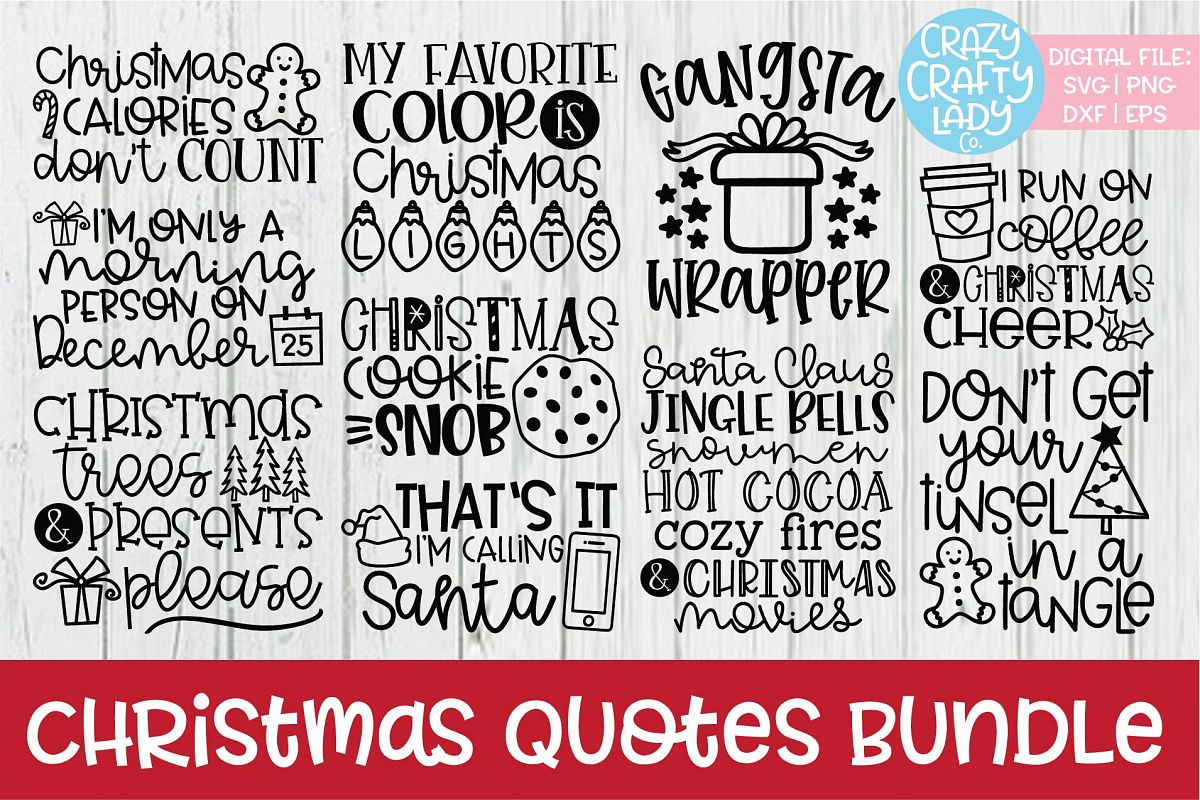 Christmas
CALORIES
don't COUNT
I'M ONLY A
morning
PERSON ON
December
25
CHRISTMAS
trees
& PRESENTS
please
MY FAVORITE
COLOR is
Christmas
LIGHTS
CHRISTMAS
COOKIE
SNOB
THAT'S IT
I'M CALLING
Santa
GANGSTA
WRAPPER
Santa Claus
JINGLE BELLS
snowmen
HOT COCOA
cozy fires
& CHRISTMAS
movies
CRAZY
CRAFTY
LADY
Co.
DIGITAL FILE:
SVG | PNG
DXF | EPS
I RUN ON
coffee
& CHRISTMAS
CHEER
DON'T GET
your
TINSEL
in a
TANGLE
CHRISTMAS QUOTES BUNDLE